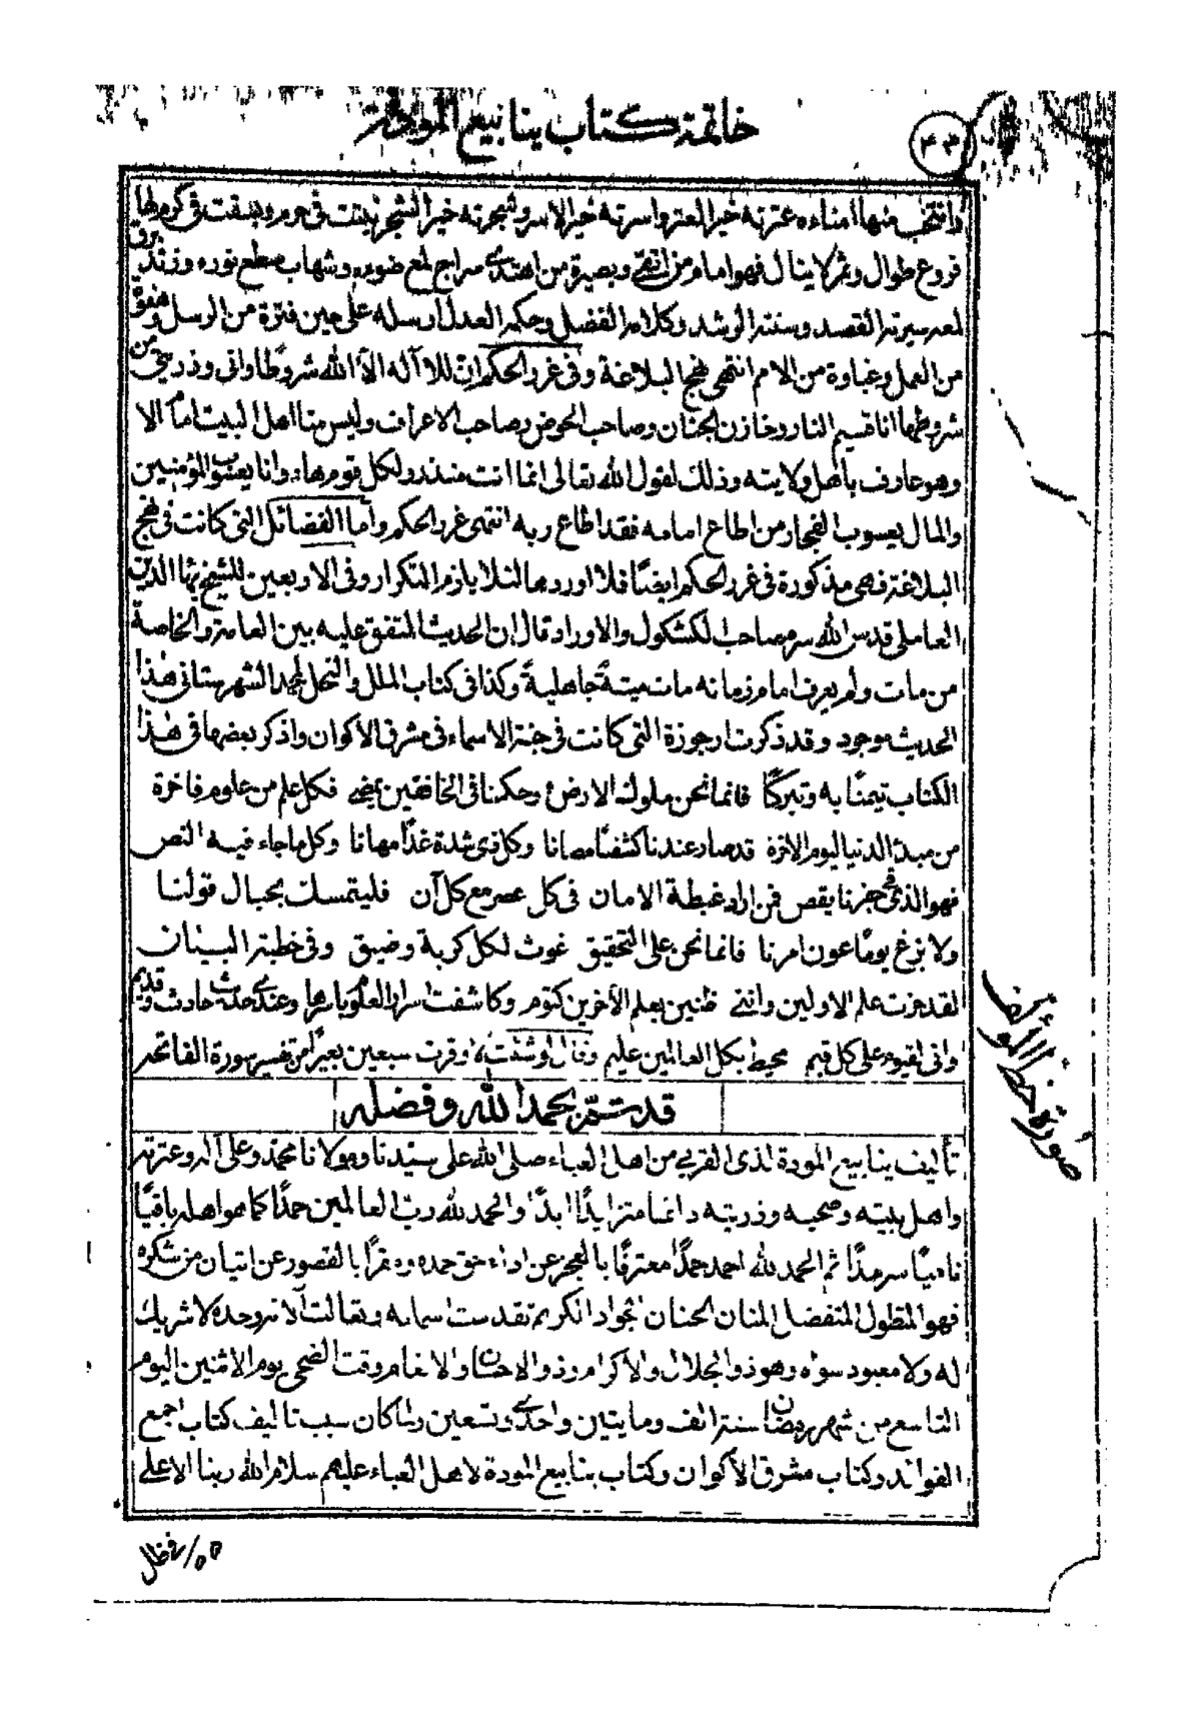 خاتمة كتاب ينابيع المودة
وانتخب منها امناءه عترته خير العتر واسرته خير الاسر وشجرته خير الشجر نبتت فى حرم وبسقت فى كرم لها
فروع طوال وثمر لا ينال فهو امام من اتقى وبصيرة من اهتدى سراج لمع ضوءه وشهاب سطع نوره وزند برق
لمعه سيرته القصد وسنته الرشد وكلامه الفضل وحكمه العدل ارسله على حين فترة من الرسل وهفوة
من العمل وغباوة من الامم انتهى نهج البلاغة وفى غرر الحكم ان للا آله الا الله شروطا وانى وذريتى من
شروطها انا قسيم النار وخازن الجنان وصاحب الحوض وصاحب الاعراف وليس منا اهل البيت امام الا
وهو عارف باهل ولايته وذلك لقول الله تعالى انما انت منذر ولكل قوم هاد وانا يعسوب المؤمنين
والمال يعسوب الفجار من اطاع امامه فقد اطاع ربه انتهى غرر الحكم واما الفضائل التى كانت فى نهج
البلاغة فهى مذكورة فى غرر الحكم ايضا فلا اوردها لئلا يلزم التكرار وفى الاربعين للشيخ بهاء الدين
العاملى قدس الله سره صاحب الكشكول والاوراد قال ان الحديث المتفق عليه بين العامة والخاصة
من مات ولم يعرف امام زمانه مات ميتة جاهلية وكذا فى كتاب الملل والنحل لمحمد الشهرستانى هذا
الحديث موجود وقد ذكرت ارجوزة التى كانت فى جنة الاسماء فى مشرق الاكوان واذكر بعضها فى هذا
الكتاب تيمنا به وتبركا فانما نحن ملوك الارض وحكمنا فى الخافقين يمضى فكل علم من علوم فاخرة
من مبدء الدنيا ليوم الاخرة قد صار عندنا كشفا مصانا وكل ذى شدة غدا مهانا وكل ما جاء فيه النص
فهو الذى فى جفرنا يقص فمن اراد غبطة الامان فى كل عصر مع كل آن فليتمسك بحبال قولنا
ولا يزغ يوما عون امرنا فانما نحن على التحقيق غوث لكل كربة وضيق وفى خطبة البيان
لقد حزت علم الاولين واننى ظنين بعلم الآخرين كتوم وكاشفت اسرار العلوم باسرها وعندى حديث حادث وقديم
وانى لقيوم على كل قيم محيط بكل العالمين عليم وقال لو شئت لاوقرت سبعين بعيرا من تفسير سورة الفاتحة
قد تم بحمد الله وفضله
تأليف ينابيع المودة لذى القربى من اهل العباء صلى الله على سيدنا ومولانا محمد وعلى آله وعترته
واهل بيته وصحبه وذريته دائما متزايدا ابدا والحمد لله رب العالمين حمدا كما هو اهله باقيا
ناميا سرمدا ثم الحمد لله احمد حمدا معترفا بالعجز عن اداء حق حمده ومقرا بالقصور عن اتيان من شكره
فهو المتطول المتفضل المنان الحنان الجواد الكريم تقدست اسماءه وتعالت آلائه وحده لا شريك
له ولا معبود سواه وهو ذو الجلال والاكرام وذو الاحسان والانعام وقت الضحى يوم الاثنين اليوم
التاسع من شهر رمضان سنة الف ومايتين واحدى وتسعين ولما كان سبب تاليف كتاب اجمع
الفوائد وكتاب مشرق الاكوان وكتاب ينابيع المودة لاهل العباء عليهم سلام الله ربنا الاعلى
صورة خط المؤلف